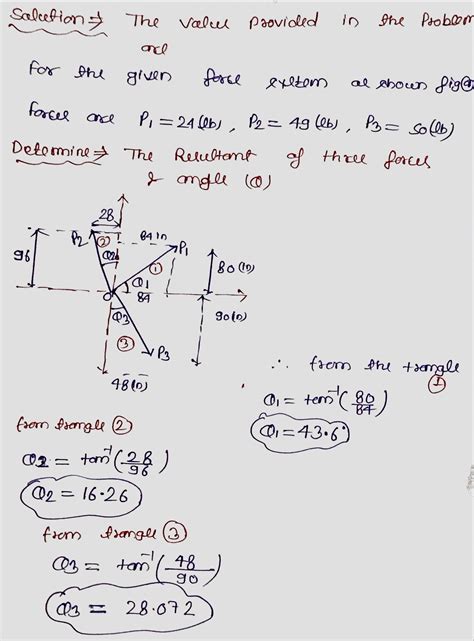 Solution ⇒ The value provided in the Problem
are
for the given force system as shown fig
forces are P₁ = 24 (lb), P₂ = 49 (lb), P₃ = 50 (lb)
Determine ⇒ The Resultant of three forces
& angle (θ)
28
P₂ ② 84 in P₁
96 θ2 ① 80 (in)
O θ1
84
θ3 90 (in)
③ P₃
48 (in)
∴ from the triangle ①
θ₁ = tan⁻¹(80/84)
θ₁ = 43.6°
from triangle ②
θ2 = tan⁻¹(28/96)
θ2 = 16.26
from triangle ③
θ3 = tan⁻¹(48/90)
θ3 = 28.072